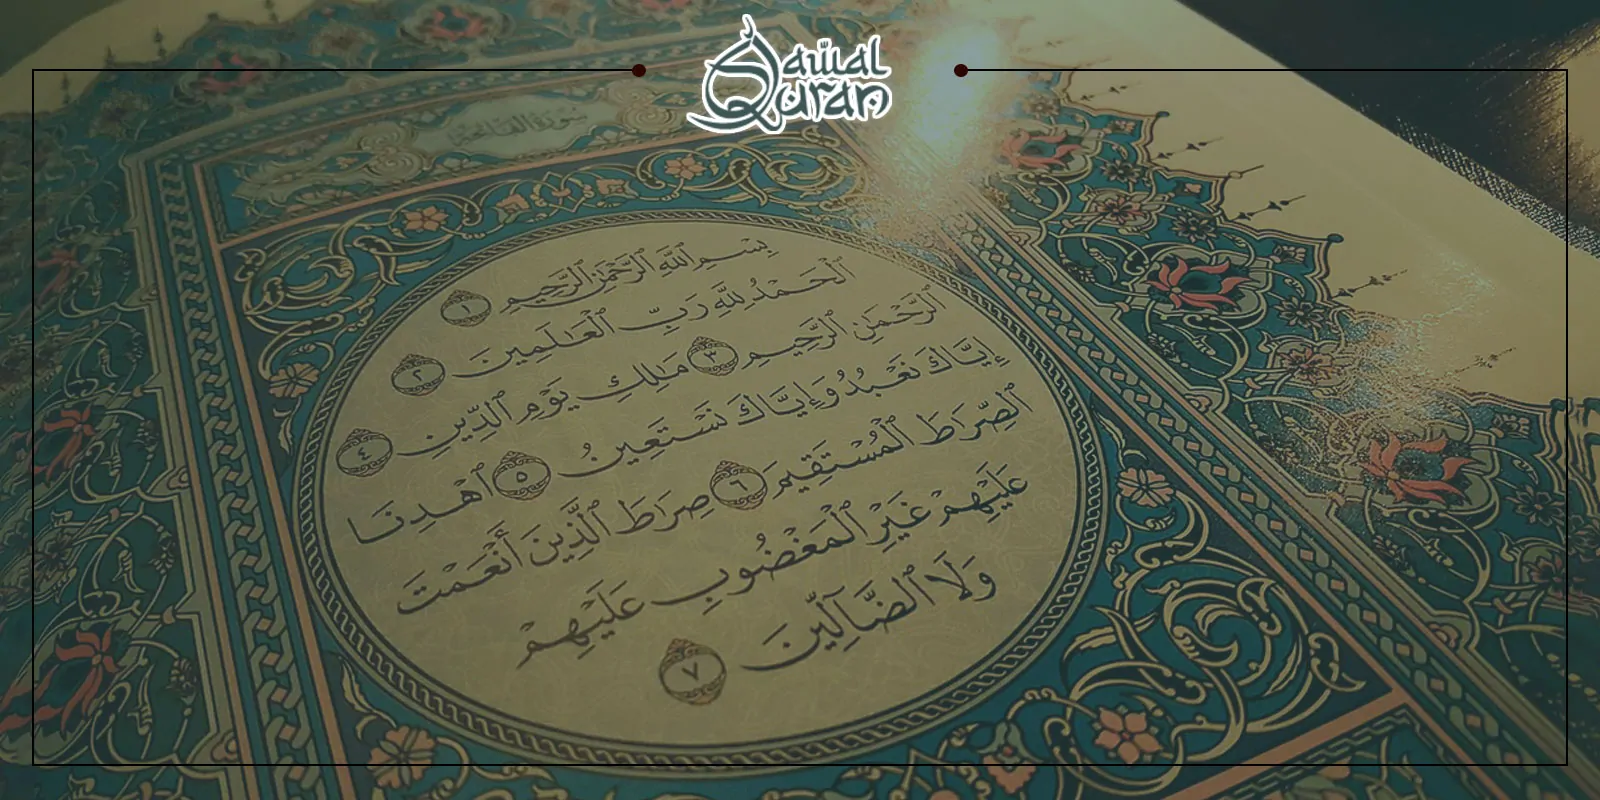 Qawal
Quran
سورة الفاتحة
بِسْمِ ٱللَّهِ ٱلرَّحْمَٰنِ ٱلرَّحِيمِ ١
ٱلْحَمْدُ لِلَّهِ رَبِّ ٱلْعَٰلَمِينَ ٢
ٱلرَّحْمَٰنِ ٱلرَّحِيمِ ٣ مَٰلِكِ يَوْمِ ٱلدِّينِ ٤
إِيَّاكَ نَعْبُدُ وَإِيَّاكَ نَسْتَعِينُ ٥ ٱهْدِنَا
ٱلصِّرَٰطَ ٱلْمُسْتَقِيمَ ٦ صِرَٰطَ ٱلَّذِينَ أَنْعَمْتَ
عَلَيْهِمْ غَيْرِ ٱلْمَغْضُوبِ عَلَيْهِمْ
وَلَا ٱلضَّآلِّينَ ٧